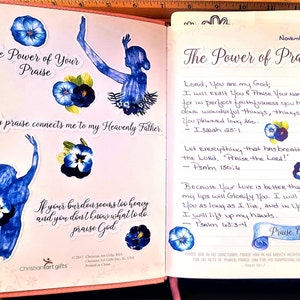 The Power of Your
Praise
praise connects me to my Heavenly Father.
If your burden seems too heavy
and you don't know what to do
praise God
© 2017 Christian Art Gifts, RSA
Christian Art Gifts Inc., IL, USA
Printed in China
Christian art gifts
Novem
The Power of Pra
Lord, You are my God;
I will exalt You & Praise Your nam
for in perfect faithfulness you h
done wonderful things, things
You planned long ago.
- Isaiah 25:1
Let everything that has breath
the Lord. "Praise the Lord!"
- Psalm 150:6
Because Your Love is better tha
my lips will Glorify You. I will
You as long as I live, and in
I will lift up my hands.
- Psalm 63:3-4
Praise